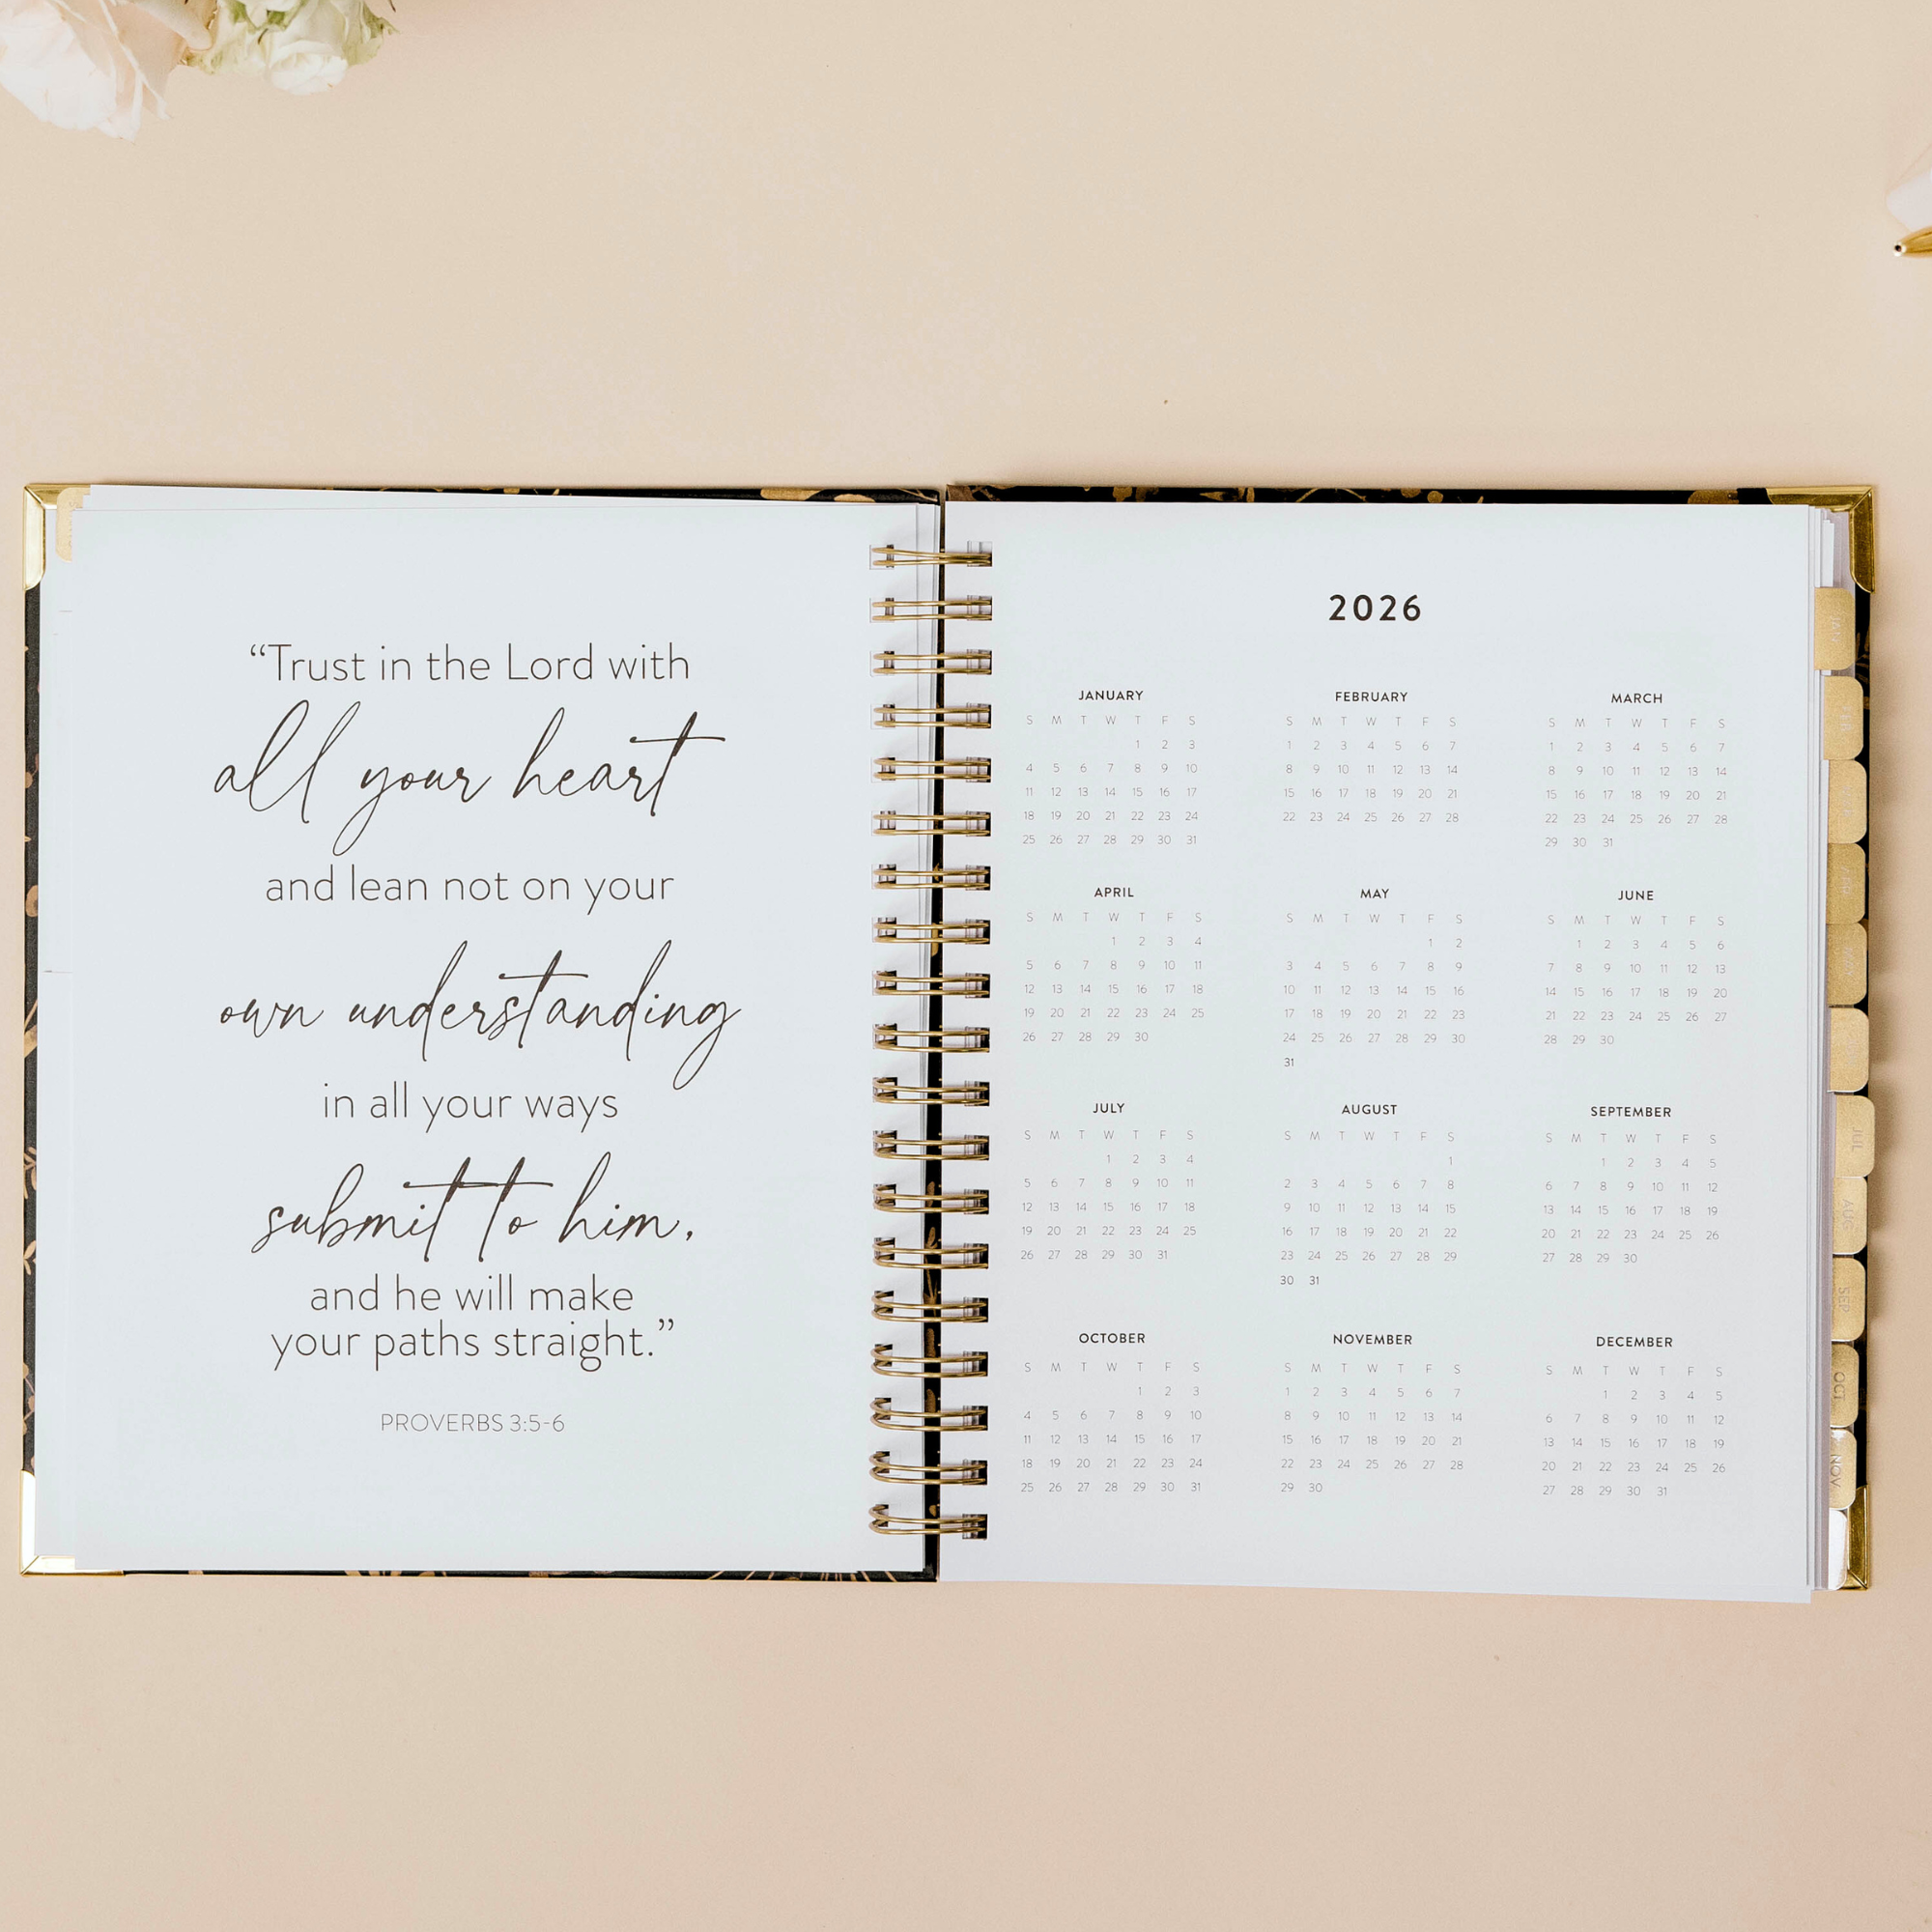 “Trust in the Lord with
all your heart
and lean not on your
own understanding
in all your ways
submit to him,
and he will make
your paths straight.”
PROVERBS 3:5-6
2026
JANUARY
S M T W T F S
1 2 3
4 5 6 7 8 9 10
11 12 13 14 15 16 17
18 19 20 21 22 23 24
25 26 27 28 29 30 31
FEBRUARY
S M T W T F S
1 2 3 4 5 6 7
8 9 10 11 12 13 14
15 16 17 18 19 20 21
22 23 24 25 26 27 28
MARCH
S M T W T F S
1 2 3 4 5 6 7
8 9 10 11 12 13 14
15 16 17 18 19 20 21
22 23 24 25 26 27 28
29 30 31
APRIL
S M T W T F S
1 2 3 4
5 6 7 8 9 10 11
12 13 14 15 16 17 18
19 20 21 22 23 24 25
26 27 28 29 30
MAY
S M T W T F S
1 2
3 4 5 6 7 8 9
10 11 12 13 14 15 16
17 18 19 20 21 22 23
24 25 26 27 28 29 30
31
JUNE
S M T W T F S
1 2 3 4 5 6
7 8 9 10 11 12 13
14 15 16 17 18 19 20
21 22 23 24 25 26 27
28 29 30
JULY
S M T W T F S
1 2 3 4
5 6 7 8 9 10 11
12 13 14 15 16 17 18
19 20 21 22 23 24 25
26 27 28 29 30 31
AUGUST
S M T W T F S
1
2 3 4 5 6 7 8
9 10 11 12 13 14 15
16 17 18 19 20 21 22
23 24 25 26 27 28 29
30 31
SEPTEMBER
S M T W T F S
1 2 3 4 5
6 7 8 9 10 11 12
13 14 15 16 17 18 19
20 21 22 23 24 25 26
27 28 29 30
OCTOBER
S M T W T F S
1 2 3
4 5 6 7 8 9 10
11 12 13 14 15 16 17
18 19 20 21 22 23 24
25 26 27 28 29 30 31
NOVEMBER
S M T W T F S
1 2 3 4 5 6 7
8 9 10 11 12 13 14
15 16 17 18 19 20 21
22 23 24 25 26 27 28
29 30
DECEMBER
S M T W T F S
1 2 3 4 5
6 7 8 9 10 11 12
13 14 15 16 17 18 19
20 21 22 23 24 25 26
27 28 29 30 31
JAN
JUL
AUG
SEP
OCT
NOV